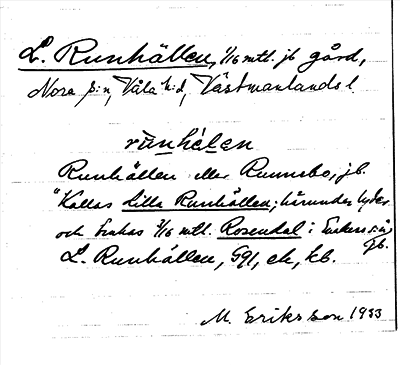 L. Runhällen, 1/16 mtl. jb gård,
Nora s:n, Våla h:d, Västmanlands l.
runhelen
Runhällen eller Runnebo, jb.
"Kallas Lilla Runhällen; härunder lyder
och brukas 7/16 mtl. Rosendal i Enkers s:n, jb.
L. Runhällen, GGl, ek, kb.
M. Eriksson 1933